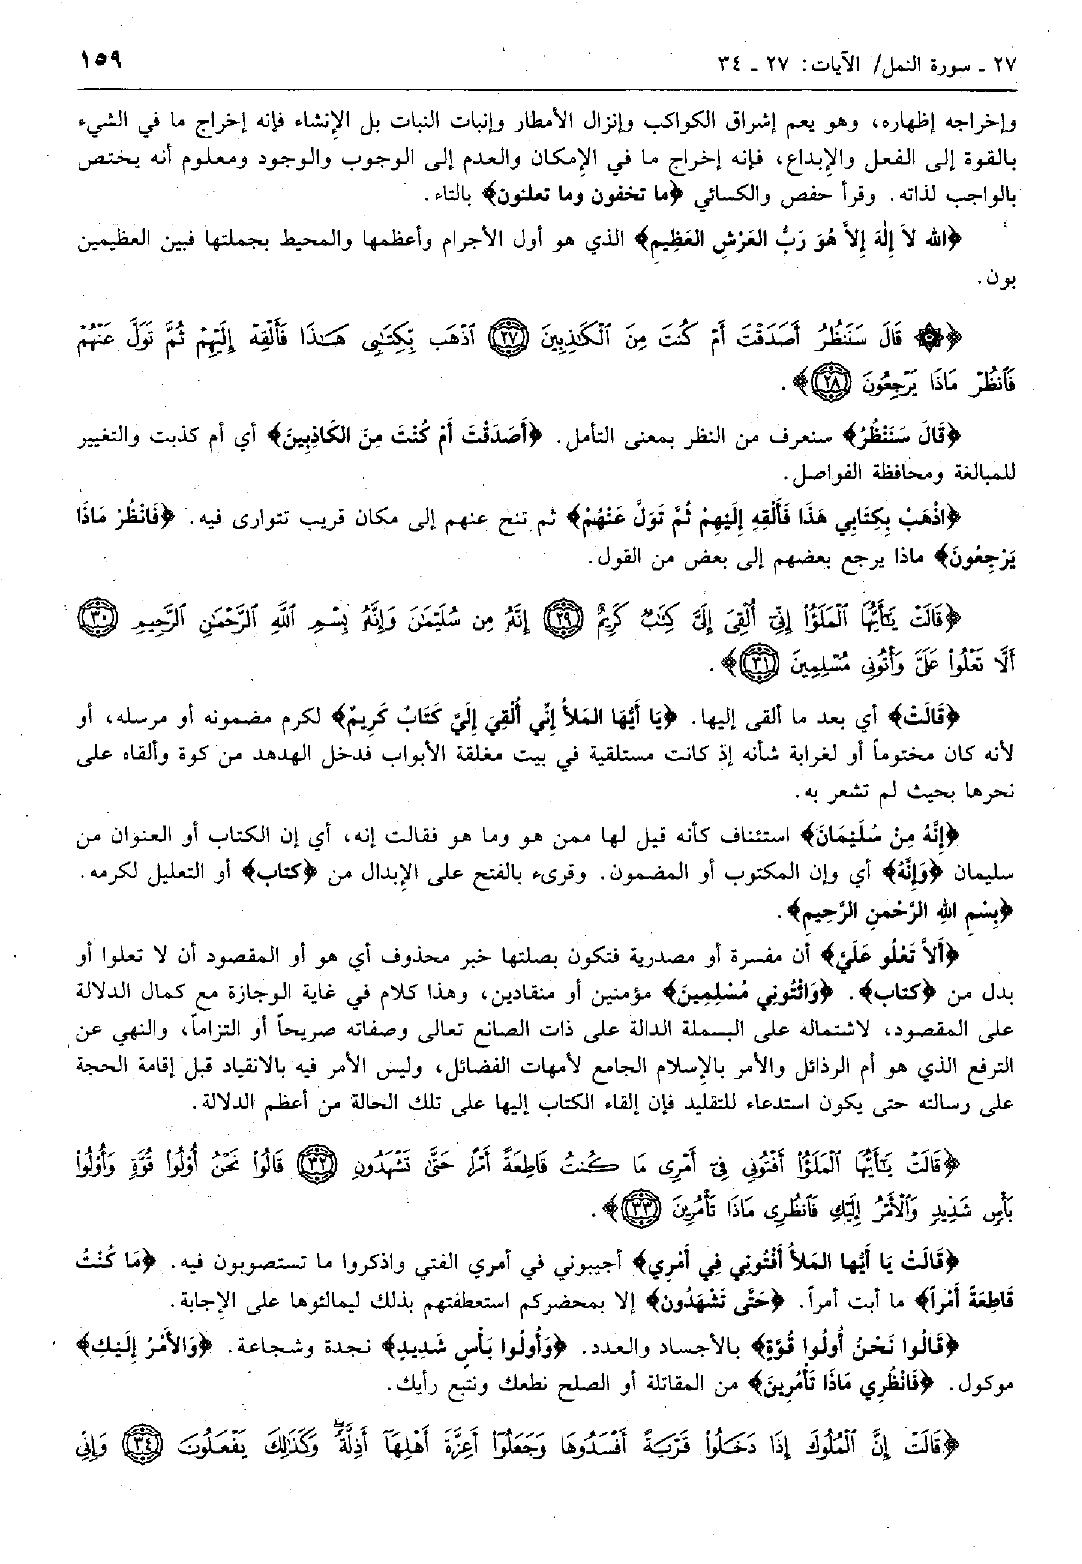 ٢٧ ـ سورة النمل/ الآيات: ٢٧ ـ ٣٤ ١٥٩
وإخراجه إظهاره، وهو يعم إشراق الكواكب وإنزال الأمطار وإنبات النبات بل الإنشاء فإنه إخراج ما في الشيء
بالقوة إلى الفعل والإبداع، فإنه إخراج ما في الإمكان والعدم إلى الوجوب والوجود ومعلوم أنه يختص
بالواجب لذاته. وقرأ حفص والكسائي ﴿ما تخفون وما تعلنون﴾ بالتاء.
﴿الله لاَ إِلَهَ إِلاَّ هُوَ رَبُّ العَرْشِ العَظِيمِ﴾ الذي هو أول الأجرام وأعظمها والمحيط بجملتها فبين العظيمين
بون.
﴿۞ قَالَ سَنَنظُرُ أَصَدَقْتَ أَمْ كُنتَ مِنَ ٱلْكَٰذِبِينَ ﴿٢٧﴾ ٱذْهَب بِّكِتَٰبِى هَٰذَا فَأَلْقِهْ إِلَيْهِمْ ثُمَّ تَوَلَّ عَنْهُمْ
فَٱنظُرْ مَاذَا يَرْجِعُونَ ﴿٢٨﴾﴾.
﴿قَالَ سَنَنْظُرُ﴾ سنعرف من النظر بمعنى التأمل. ﴿أَصَدَقْتَ أَمْ كُنْتَ مِنَ الكَاذِبِينَ﴾ أي أم كذبت والتغيير
للمبالغة ومحافظة الفواصل.
﴿اذْهَبْ بِكِتَابِي هَذَا فَأَلْقِهِ إِلَيْهِمْ ثُمَّ تَوَلَّ عَنْهُمْ﴾ ثم تنح عنهم إلى مكان قريب تتوارى فيه. ﴿فَانْظُرْ مَاذَا
يَرْجِعُونَ﴾ ماذا يرجع بعضهم إلى بعض من القول.
﴿قَالَتْ يَٰٓأَيُّهَا ٱلْمَلَؤُا۟ إِنِّىٓ أُلْقِىَ إِلَىَّ كِتَٰبٌ كَرِيمٌ ﴿٢٩﴾ إِنَّهُۥ مِن سُلَيْمَٰنَ وَإِنَّهُۥ بِسْمِ ٱللَّهِ ٱلرَّحْمَٰنِ ٱلرَّحِيمِ ﴿٣٠﴾
أَلَّا تَعْلُوا۟ عَلَىَّ وَأْتُونِى مُسْلِمِينَ ﴿٣١﴾﴾.
﴿قَالَتْ﴾ أي بعد ما ألقى إليها. ﴿يَا أَيُّهَا المَلأُ إِنِّي أُلْقِيَ إِلَيَّ كَتَابٌ كَرِيمٌ﴾ لكرم مضمونه أو مرسله، أو
لأنه كان مختوماً أو لغرابة شأنه إذ كانت مستلقية في بيت مغلقة الأبواب فدخل الهدهد من كوة وألقاه على
نحرها بحيث لم تشعر به.
﴿إِنَّهُ مِنْ سُلَيْمَانَ﴾ استئناف كأنه قيل لها ممن هو وما هو فقالت إنه، أي إن الكتاب أو العنوان من
سليمان ﴿وَإِنَّهُ﴾ أي وإن المكتوب أو المضمون. وقرىء بالفتح على الإبدال من ﴿كتاب﴾ أو التعليل لكرمه.
﴿بِسْمِ اللهِ الرَّحْمنِ الرَّحِيمِ﴾.
﴿أَلاَّ تَعْلُو عَلَيَّ﴾ أن مفسرة أو مصدرية فتكون بصلتها خبر محذوف أي هو أو المقصود أن لا تعلوا أو
بدل من ﴿كتاب﴾. ﴿وَائْتُونِي مُسْلِمِينَ﴾ مؤمنين أو منقادين، وهذا كلام في غاية الوجازة مع كمال الدلالة
على المقصود، لاشتماله على البسملة الدالة على ذات الصانع تعالى وصفاته صريحاً أو التزاماً، والنهي عن
الترفع الذي هو أم الرذائل والأمر بالإسلام الجامع لأمهات الفضائل، وليس الأمر فيه بالانقياد قبل إقامة الحجة
على رسالته حتى يكون استدعاء للتقليد فإن إلقاء الكتاب إليها على تلك الحالة من أعظم الدلالة.
﴿قَالَتْ يَٰٓأَيُّهَا ٱلْمَلَؤُا۟ أَفْتُونِى فِىٓ أَمْرِى مَا كُنتُ قَاطِعَةً أَمْرًا حَتَّىٰ تَشْهَدُونِ ﴿٣٢﴾ قَالُوا۟ نَحْنُ أُو۟لُوا۟ قُوَّةٍ وَأُو۟لُوا۟
بَأْسٍ شَدِيدٍ وَٱلْأَمْرُ إِلَيْكِ فَٱنظُرِى مَاذَا تَأْمُرِينَ ﴿٣٣﴾﴾.
﴿قَالَتْ يَا أَيُّها المَلأُ أَفْتُونِي فِي أَمْرِي﴾ أجيبوني في أمري الفتي واذكروا ما تستصوبون فيه. ﴿مَا كُنْتُ
قَاطِعَةً أَمْراً﴾ ما أبت أمراً. ﴿حَتَّى تَشْهَدُونِ﴾ إلا بمحضركم استعطفتهم بذلك ليمالئوها على الإجابة.
﴿قَالُوا نَحْنُ أُولُوا قُوَّةٍ﴾ بالأجساد والعدد. ﴿وَأُولُوا بَأْسٍ شَدِيدٍ﴾ نجدة وشجاعة. ﴿وَالأَمْرُ إِلَيْكِ﴾
موكول. ﴿فَانْظُرِي مَاذَا تَأْمُرِينَ﴾ من المقاتلة أو الصلح نطعك ونتبع رأيك.
﴿قَالَتْ إِنَّ ٱلْمُلُوكَ إِذَا دَخَلُوا۟ قَرْيَةً أَفْسَدُوهَا وَجَعَلُوٓا۟ أَعِزَّةَ أَهْلِهَآ أَذِلَّةً ۖ وَكَذَٰلِكَ يَفْعَلُونَ ﴿٣٤﴾ وَإِنِّى